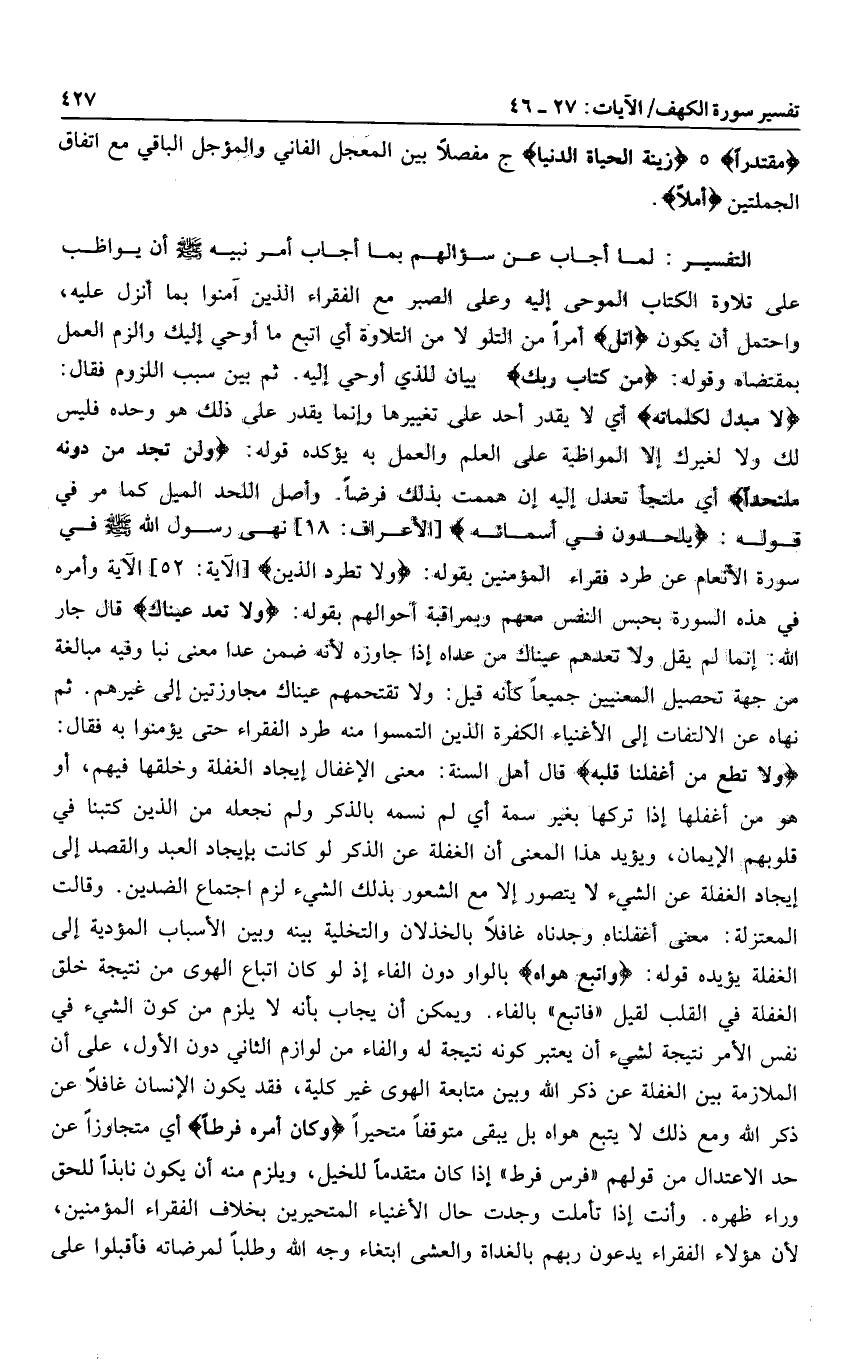 تفسير سورة الكهف/ الآيات: ٢٧ - ٤٦
٤٢٧
﴿مقتدراً﴾ ٥ ﴿زينة الحياة الدنيا﴾ ج مفصلاً بين المعجل الفاني والمؤجل الباقي مع اتفاق
الجملتين ﴿أملاً﴾.
التفسير : لما أجاب عن سؤالهم بما أجاب أمر نبيه ﷺ أن يواظب
على تلاوة الكتاب الموحى إليه وعلى الصبر مع الفقراء الذين آمنوا بما أنزل عليه،
واحتمل أن يكون ﴿اتل﴾ أمراً من التلو لا من التلاوة أي اتبع ما أوحي إليك والزم العمل
بمقتضاه وقوله: ﴿من كتاب ربك﴾ بيان للذي أوحي إليه. ثم بين سبب اللزوم فقال:
﴿لا مبدل لكلماته﴾ أي لا يقدر أحد على تغييرها وإنما يقدر على ذلك هو وحده فليس
لك ولا لغيرك إلا المواظبة على العلم والعمل به يؤكده قوله: ﴿ولن تجد من دونه
ملتحداً﴾ أي ملتجأ تعدل إليه إن هممت بذلك فرضاً. وأصل اللحد الميل كما مر في
قوله : ﴿يلحدون في أسمائه﴾ [الأعراف: ١٨] نهى رسول الله ﷺ في
سورة الأنعام عن طرد فقراء المؤمنين بقوله: ﴿ولا تطرد الذين﴾ [الآية: ٥٢] الآية وأمره
في هذه السورة بحبس النفس معهم وبمراقبة أحوالهم بقوله: ﴿ولا تعد عيناك﴾ قال جار
الله: إنما لم يقل ولا تعدهم عيناك من عداه إذا جاوزه لأنه ضمن عدا معنى نبا وفيه مبالغة
من جهة تحصيل المعنيين جميعاً كأنه قيل: ولا تقتحمهم عيناك مجاوزتين إلى غيرهم. ثم
نهاه عن الالتفات إلى الأغنياء الكفرة الذين التمسوا منه طرد الفقراء حتى يؤمنوا به فقال:
﴿ولا تطع من أغفلنا قلبه﴾ قال أهل السنة: معنى الإغفال إيجاد الغفلة وخلقها فيهم، أو
هو من أغفلها إذا تركها بغير سمة أي لم نسمه بالذكر ولم نجعله من الذين كتبنا في
قلوبهم الإيمان، ويؤيد هذا المعنى أن الغفلة عن الذكر لو كانت بإيجاد العبد والقصد إلى
إيجاد الغفلة عن الشيء لا يتصور إلا مع الشعور بذلك الشيء لزم اجتماع الضدين. وقالت
المعتزلة: معنى أغفلناه وجدناه غافلاً بالخذلان والتخلية بينه وبين الأسباب المؤدية إلى
الغفلة يؤيده قوله: ﴿واتبع هواه﴾ بالواو دون الفاء إذ لو كان اتباع الهوى من نتيجة خلق
الغفلة في القلب لقيل «فاتبع» بالفاء. ويمكن أن يجاب بأنه لا يلزم من كون الشيء في
نفس الأمر نتيجة لشيء أن يعتبر كونه نتيجة له والفاء من لوازم الثاني دون الأول، على أن
الملازمة بين الغفلة عن ذكر الله وبين متابعة الهوى غير كلية، فقد يكون الإنسان غافلاً عن
ذكر الله ومع ذلك لا يتبع هواه بل يبقى متوقفاً متحيراً ﴿وكان أمره فرطاً﴾ أي متجاوزاً عن
حد الاعتدال من قولهم «فرس فرط» إذا كان متقدماً للخيل، ويلزم منه أن يكون نابذاً للحق
وراء ظهره. وأنت إذا تأملت وجدت حال الأغنياء المتحيرين بخلاف الفقراء المؤمنين،
لأن هؤلاء الفقراء يدعون ربهم بالغداة والعشى ابتغاء وجه الله وطلباً لمرضاته فأقبلوا على